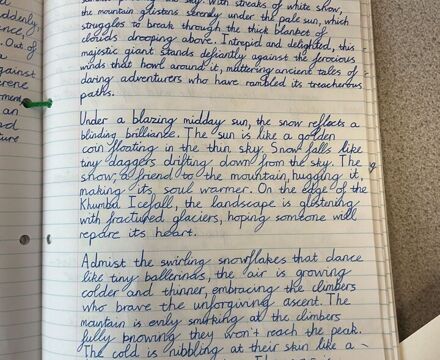 ddenly,
ce, of
Out of
a
gainst
rene
ment
an
d
ture
With streaks of white snow,
the mountain glistens serenely under the pale sun, which
struggles to break through the thick blanket of
clouds drooping above. Intrepid and delighted, this
majestic giant stands defiantly against the ferocious
winds that howl around it, muttering ancient tales of
daring adventurers who have rambled its treacherous
paths.
Under a blazing midday sun, the snow reflects a
blinding brilliance. The sun is like a golden
coin floating in the thin sky. Snow falls like
tiny daggers drifting down from the sky. The
snow, a friend to the mountain, hugging it,
making its soul warmer. On the edge of the
Khumba Icefall, the landscape is glistening
with fractured glaciers, hoping someone will
repare its heart.
Admist the swirling snowflakes that dance
like tiny ballerinas, the air is growing
colder and thinner, embracing the climbers
who brave the unforgiving ascent. The
mountain is evily smirking at the climbers
fully knowing they won't reach the peak.
The cold is nibbling at their skin like a